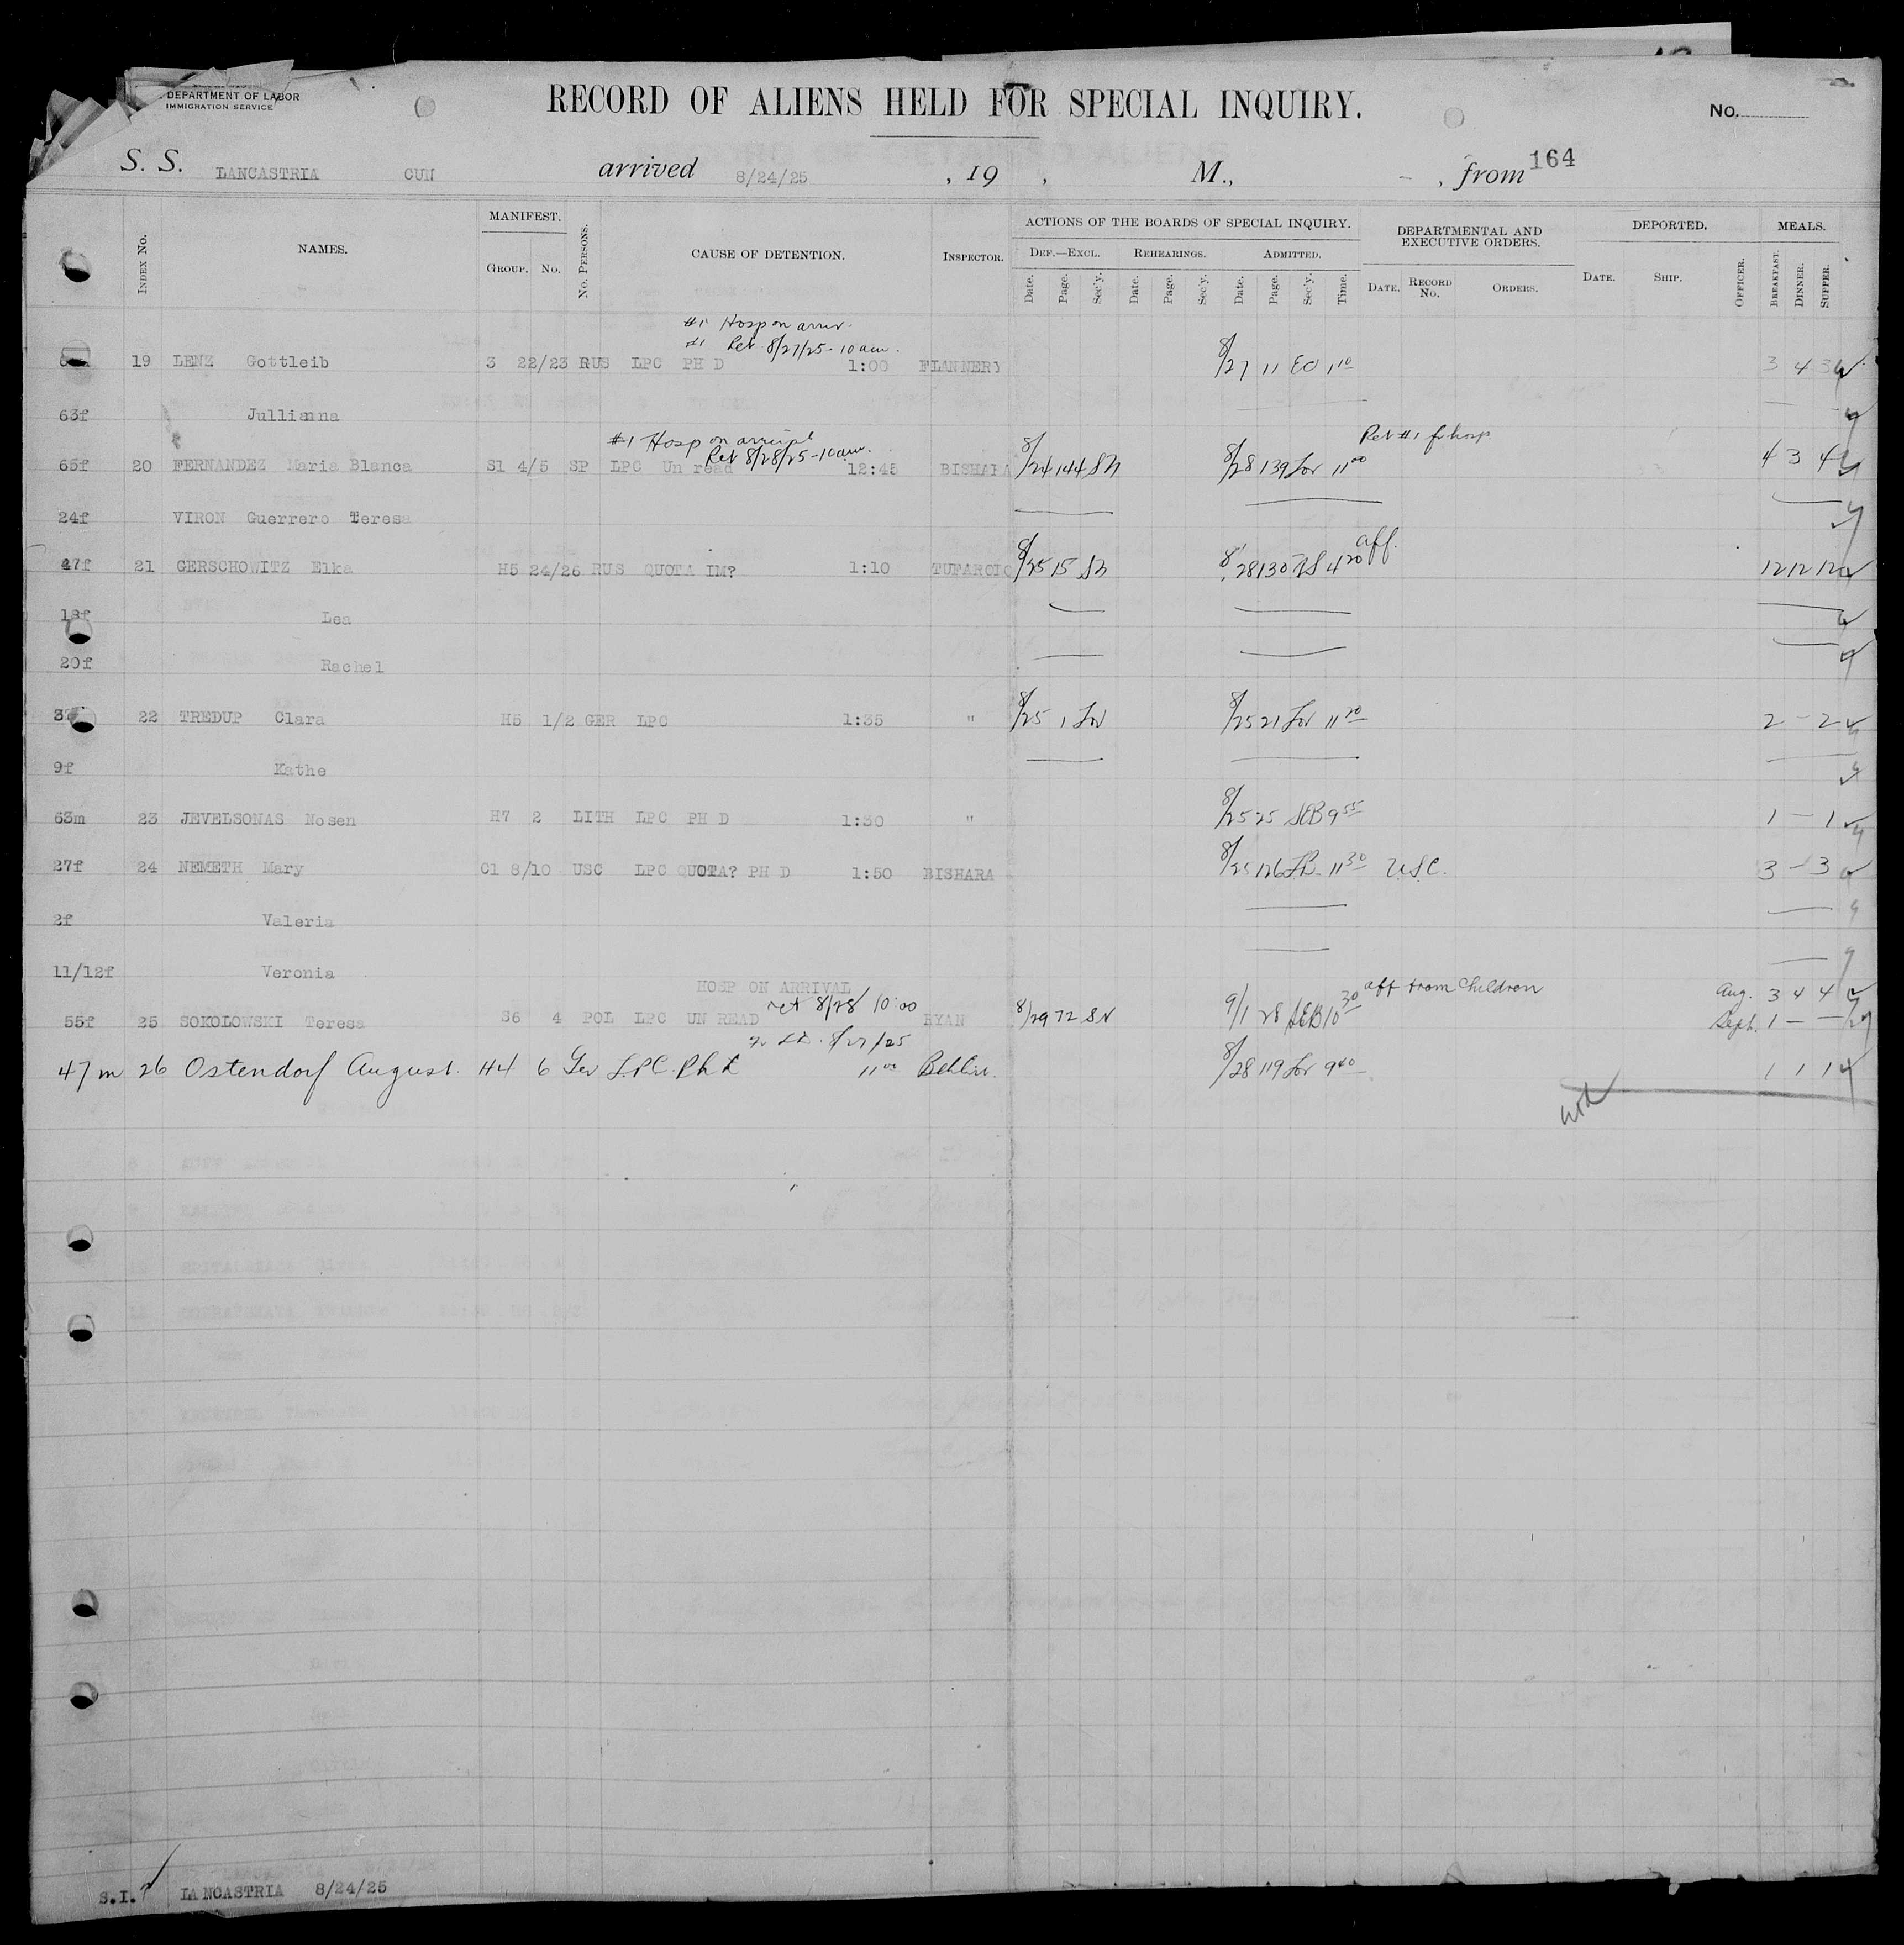 DEPARTMENT OF LABOR
IMMIGRATION SERVICE
RECORD OF ALIENS HELD FOR SPECIAL INQUIRY.
No.
S. S. LANCASTRIA CUN arrived 8/24/25 , 19 , M., , from 164
INDEX No. NAMES. MANIFEST. GROUP. No. No. PERSONS. CAUSE OF DETENTION. INSPECTOR. ACTIONS OF THE BOARDS OF SPECIAL INQUIRY. DEPARTMENTAL AND EXECUTIVE ORDERS. DEPORTED. MEALS.
DEF.—EXCL. REHEARINGS. ADMITTED.
Date. Page. Sec'y. Date. Page. Sec'y. Date. Page. Sec'y. Time. DATE. RECORD No. ORDERS. DATE. SHIP. OFFICER. BREAKFAST. DINNER. SUPPER.
#1 Hosp on arriv.
#1 Ret. 8/27/25 - 10 am.
19 LENZ Gottleib 3 22/23 RUS LPC PH D 1:00 FLANNERY 8/27 11 EO 1 10 3 4 3
63f Jullianna
#1 Hosp on arrival
Ret 8/28/25 - 10 am. Ret #1 fr hosp.
65f 20 FERNANDEZ Maria Blanca S1 4/5 SP LPC Un read 12:45 BISHARA 8/24 144 SN 8/28 139 Lor 11 00 4 3 4
24f VIRON Guerrero Teresa
47f 21 GERSCHOWITZ Elka H5 24/26 RUS QUOTA IM? 1:10 TUFAROLO 8/25 15 SN 8/28 130 4 20 aff. 12 12 12
18f Lea
20f Rachel
22 TREDUP Clara H5 1/2 GER LPC 1:35 " 8/25 1 Lor 8/25 21 Lor 11 20 2 - 2
9f Kathe
63m 23 JEVELSONAS Nosen H7 2 LITH LPC PH D 1:30 " 8/25 25 SEB 9 55 1 - 1
27f 24 NEMETH Mary C1 8/10 USC LPC QUOTA? PH D 1:50 BISHARA 8/25 126 11 30 U.S.C. 3 - 3
2f Valeria
11/12f Veronia
HOSP ON ARRIVAL
ret 8/28 10:00 aff from Children Aug. 3 4 4
55f 25 SOKOLOWSKI Teresa S6 4 POL LPC UN READ RYAN 8/29 72 SN 9/1 28 SEB 10 30 Sept. 1 - -
8/27/25
47m 26 Ostendorf August. H4 6 Ger L.P.C. Ph D 11 00 8/28 119 Lor 9 40 1 1 1
S.I. LANCASTRIA 8/24/25